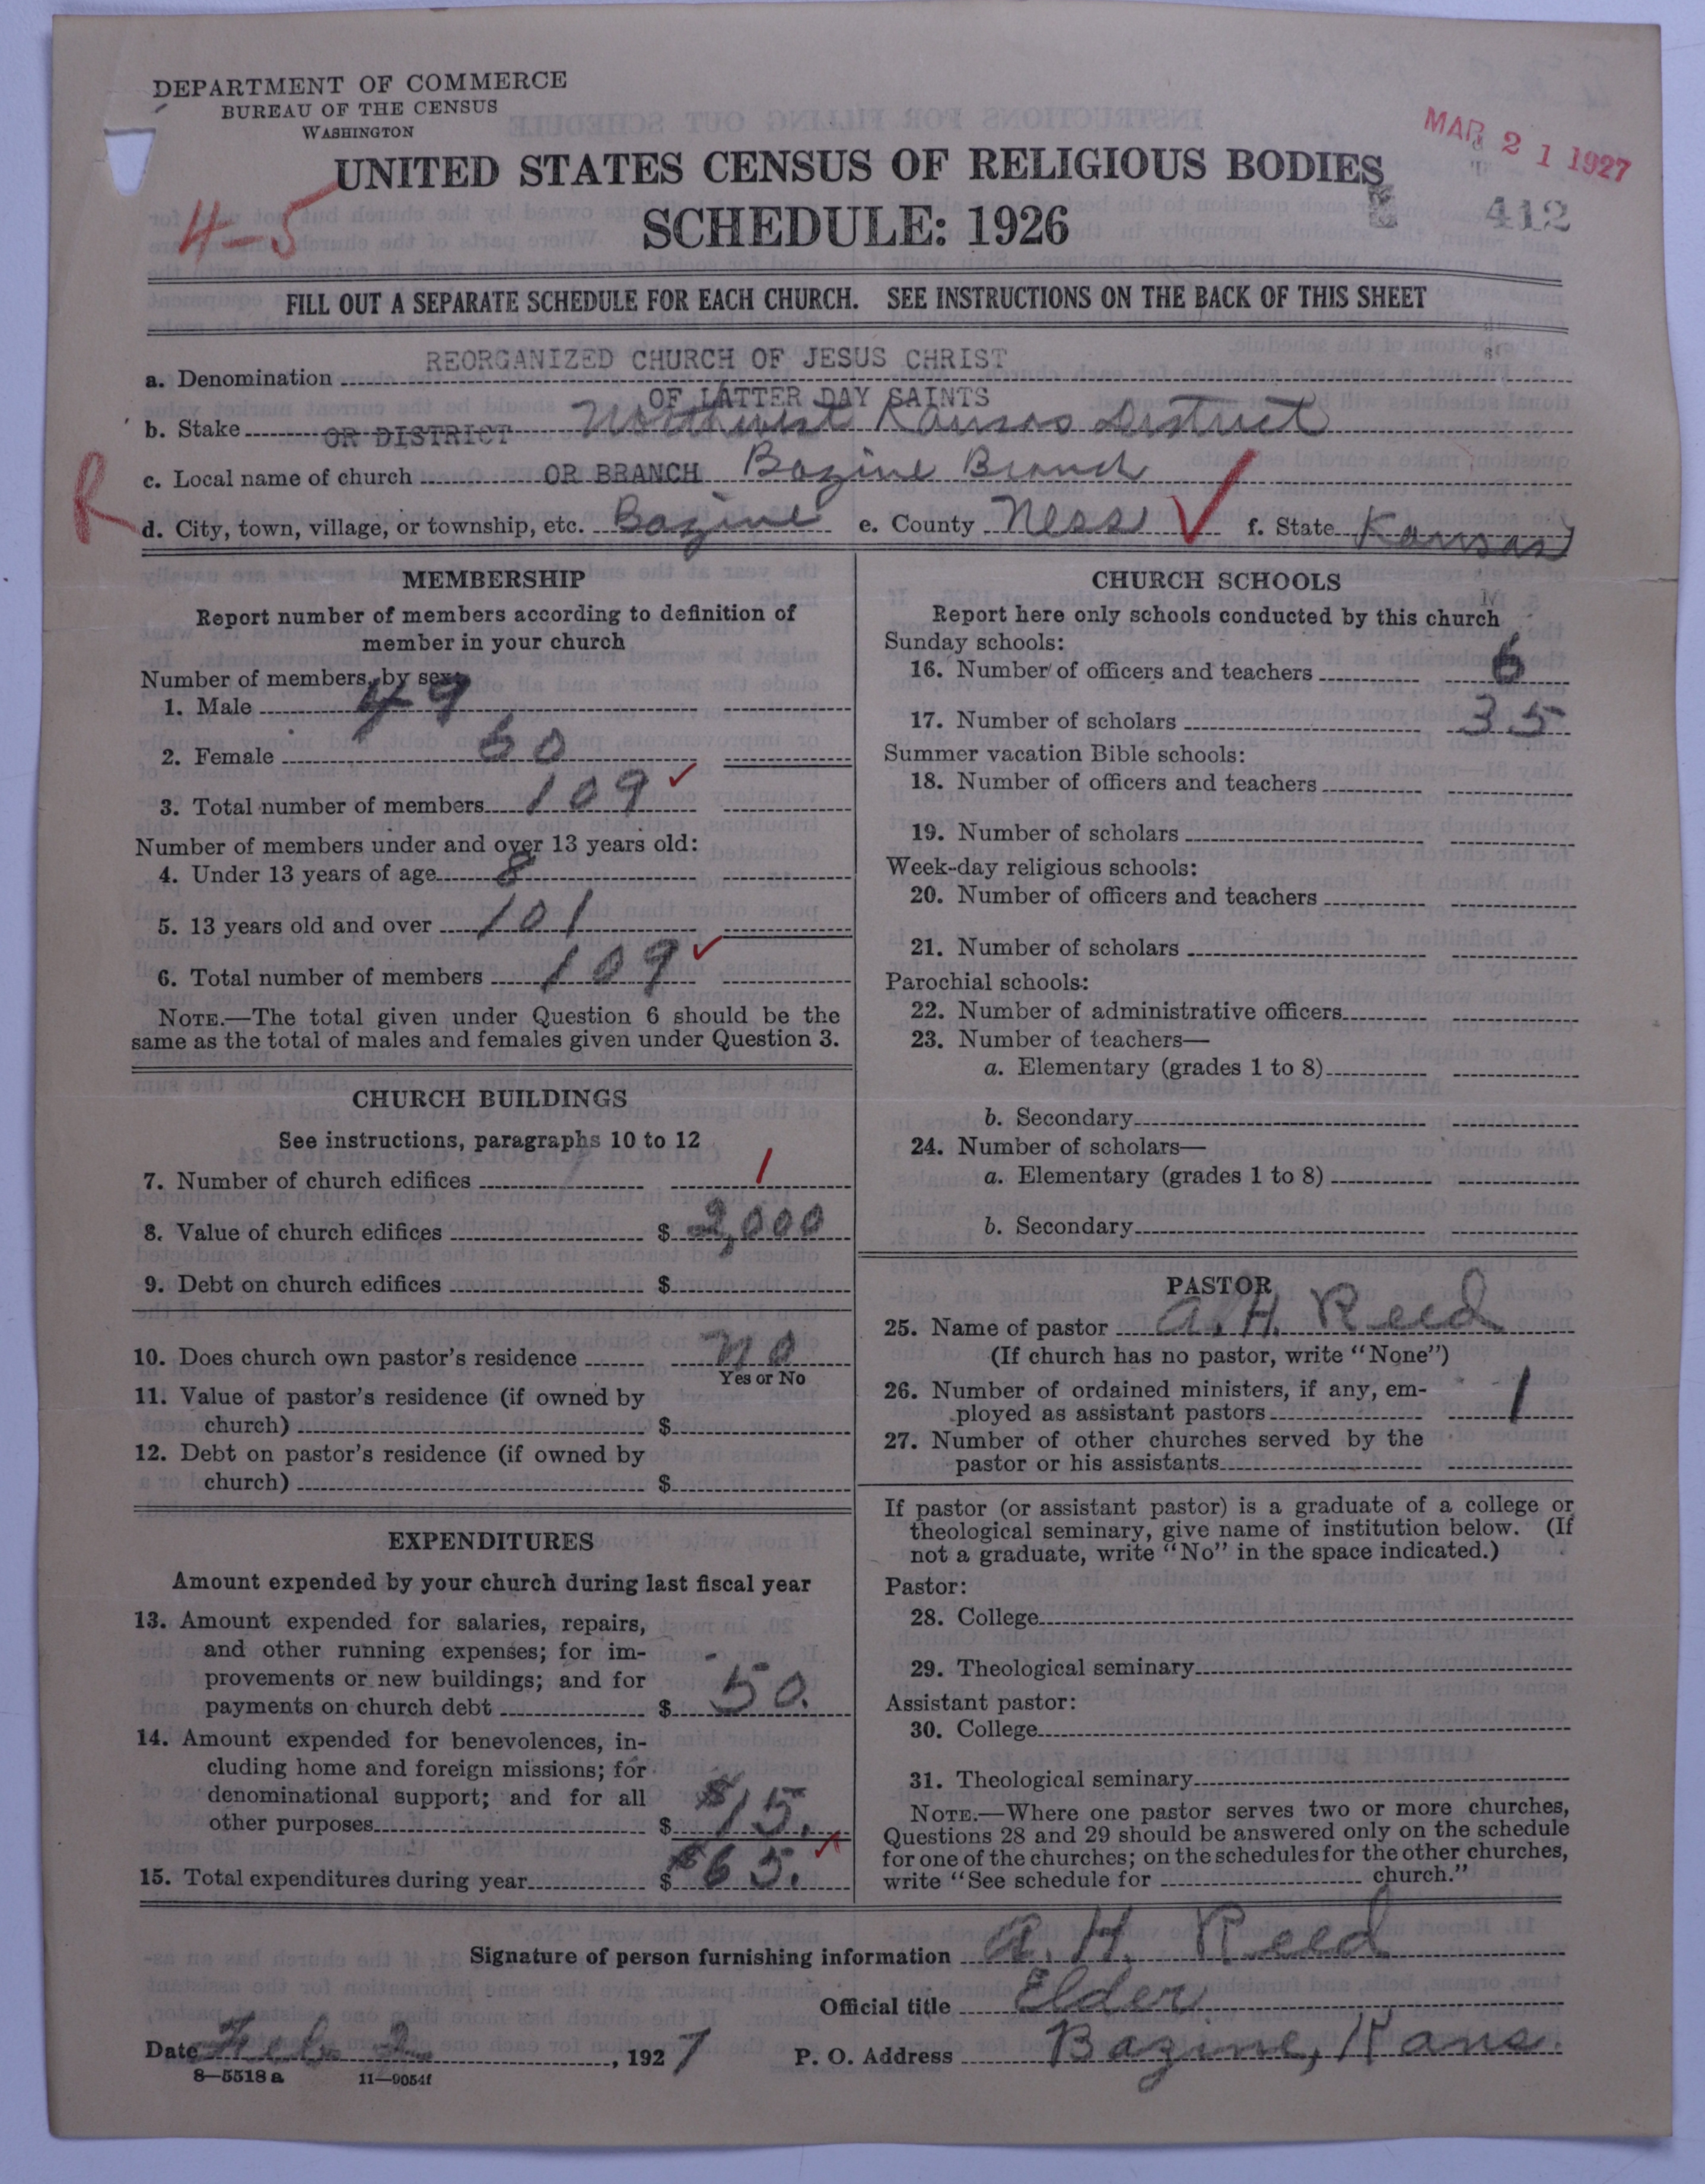 DEPARTMENT OF COMMERCE
BUREAU OF THE CENSUS
WASHINGTON
MAR 21 1927
UNITED STATES CENSUS OF RELIGIOUS BODIES
4-5
SCHEDULE: 1926
412
FILL OUT A SEPARATE SCHEDULE FOR EACH CHURCH. SEE INSTRUCTIONS ON THE BACK OF THIS SHEET
a. Denomination REORGANIZED CHURCH OF JESUS CHRIST
OF LATTER DAY SAINTS
b. Stake OR DISTRICT Northwest Kansas District
R
c. Local name of church OR BRANCH Bazine Branch
d. City, town, village, or township, etc. Bazine e. County Ness ✓ f. State Kansas
MEMBERSHIP
Report number of members according to definition of
member in your church
Number of members, by sex:
1. Male 49
2. Female 60
3. Total number of members 109 ✓
Number of members under and over 13 years old:
4. Under 13 years of age 8
5. 13 years old and over 101
6. Total number of members 109 ✓
NOTE.—The total given under Question 6 should be the
same as the total of males and females given under Question 3.
CHURCH BUILDINGS
See instructions, paragraphs 10 to 12
7. Number of church edifices 1
8. Value of church edifices $ 2,000
9. Debt on church edifices $
10. Does church own pastor's residence No
Yes or No
11. Value of pastor's residence (if owned by
church) $
12. Debt on pastor's residence (if owned by
church) $
EXPENDITURES
Amount expended by your church during last fiscal year
13. Amount expended for salaries, repairs,
and other running expenses; for im-
provements or new buildings; and for
payments on church debt $ 50.
14. Amount expended for benevolences, in-
cluding home and foreign missions; for
denominational support; and for all
other purposes $ $15.
15. Total expenditures during year $ $65.
CHURCH SCHOOLS
Report here only schools conducted by this church
Sunday schools:
16. Number of officers and teachers 6
17. Number of scholars 35
Summer vacation Bible schools:
18. Number of officers and teachers
19. Number of scholars
Week-day religious schools:
20. Number of officers and teachers
21. Number of scholars
Parochial schools:
22. Number of administrative officers
23. Number of teachers—
a. Elementary (grades 1 to 8)
b. Secondary
24. Number of scholars—
a. Elementary (grades 1 to 8)
b. Secondary
PASTOR
25. Name of pastor A. H. Reed
(If church has no pastor, write "None")
26. Number of ordained ministers, if any, em-
ployed as assistant pastors 1
27. Number of other churches served by the
pastor or his assistants
If pastor (or assistant pastor) is a graduate of a college or
theological seminary, give name of institution below. (If
not a graduate, write "No" in the space indicated.)
Pastor:
28. College
29. Theological seminary
Assistant pastor:
30. College
31. Theological seminary
NOTE.—Where one pastor serves two or more churches,
Questions 28 and 29 should be answered only on the schedule
for one of the churches; on the schedules for the other churches,
write "See schedule for church."
Signature of person furnishing information A. H. Reed
Official title Elder
Date Feb. 2, 1927 P. O. Address Bazine, Kans.
8—5518 a 11—9054f